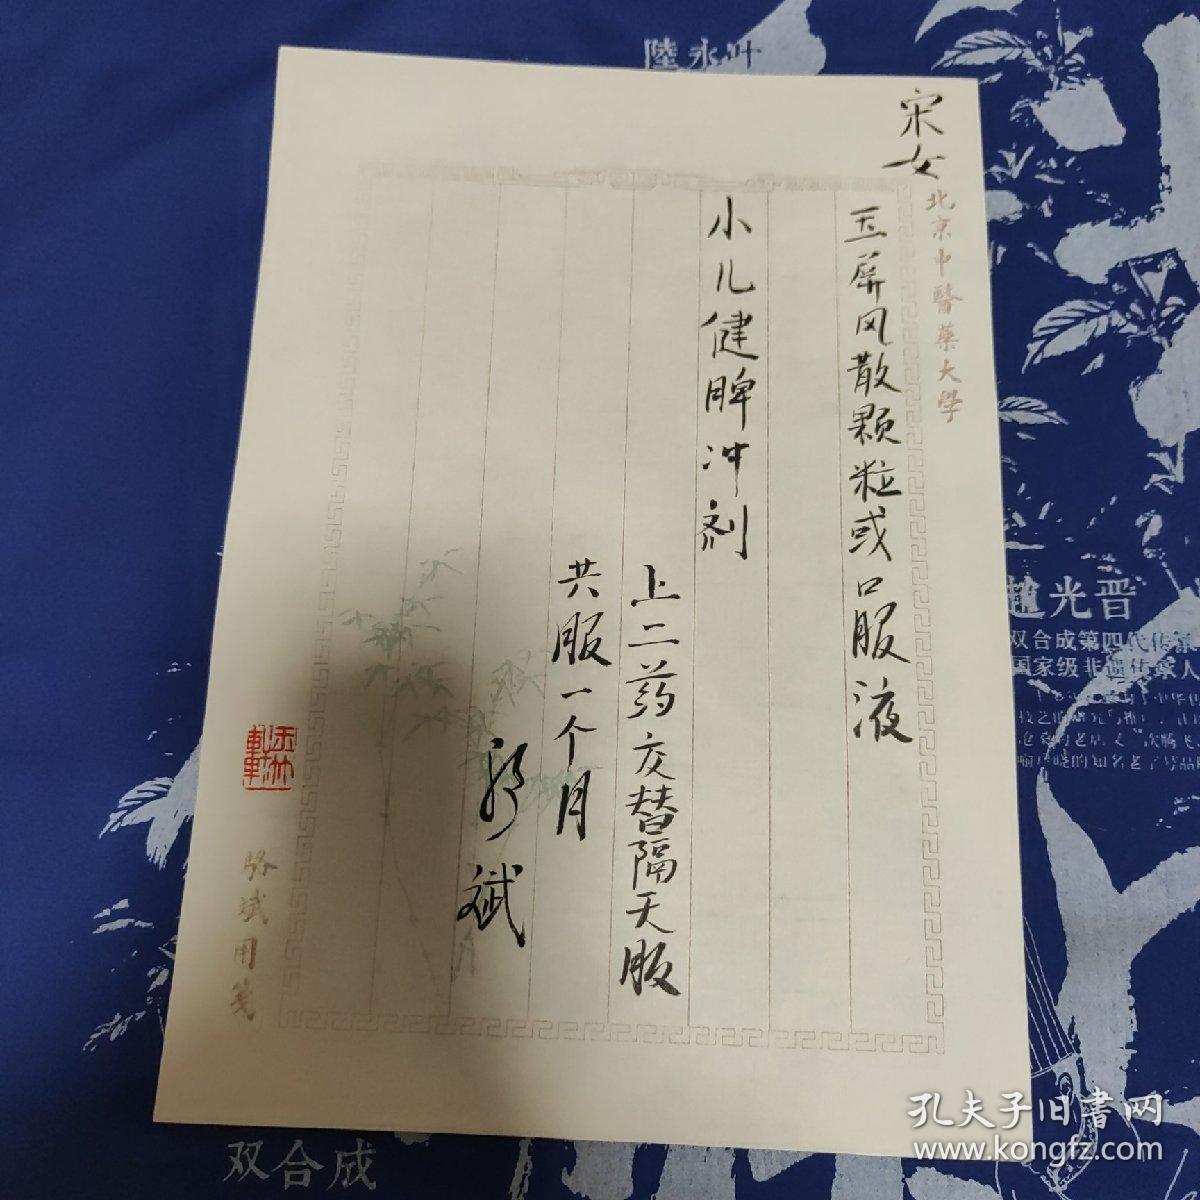 宋女
北京中醫藥大學
玉屏风散颗粒或口服液
小儿健脾冲剂
上二药交替隔天服
共服一个月
斌
骆斌用箋
陸永叶
赵光晋
双合成第四代传承
国家级非遗传承人
双合成
孔夫子旧书网
www.kongfz.com